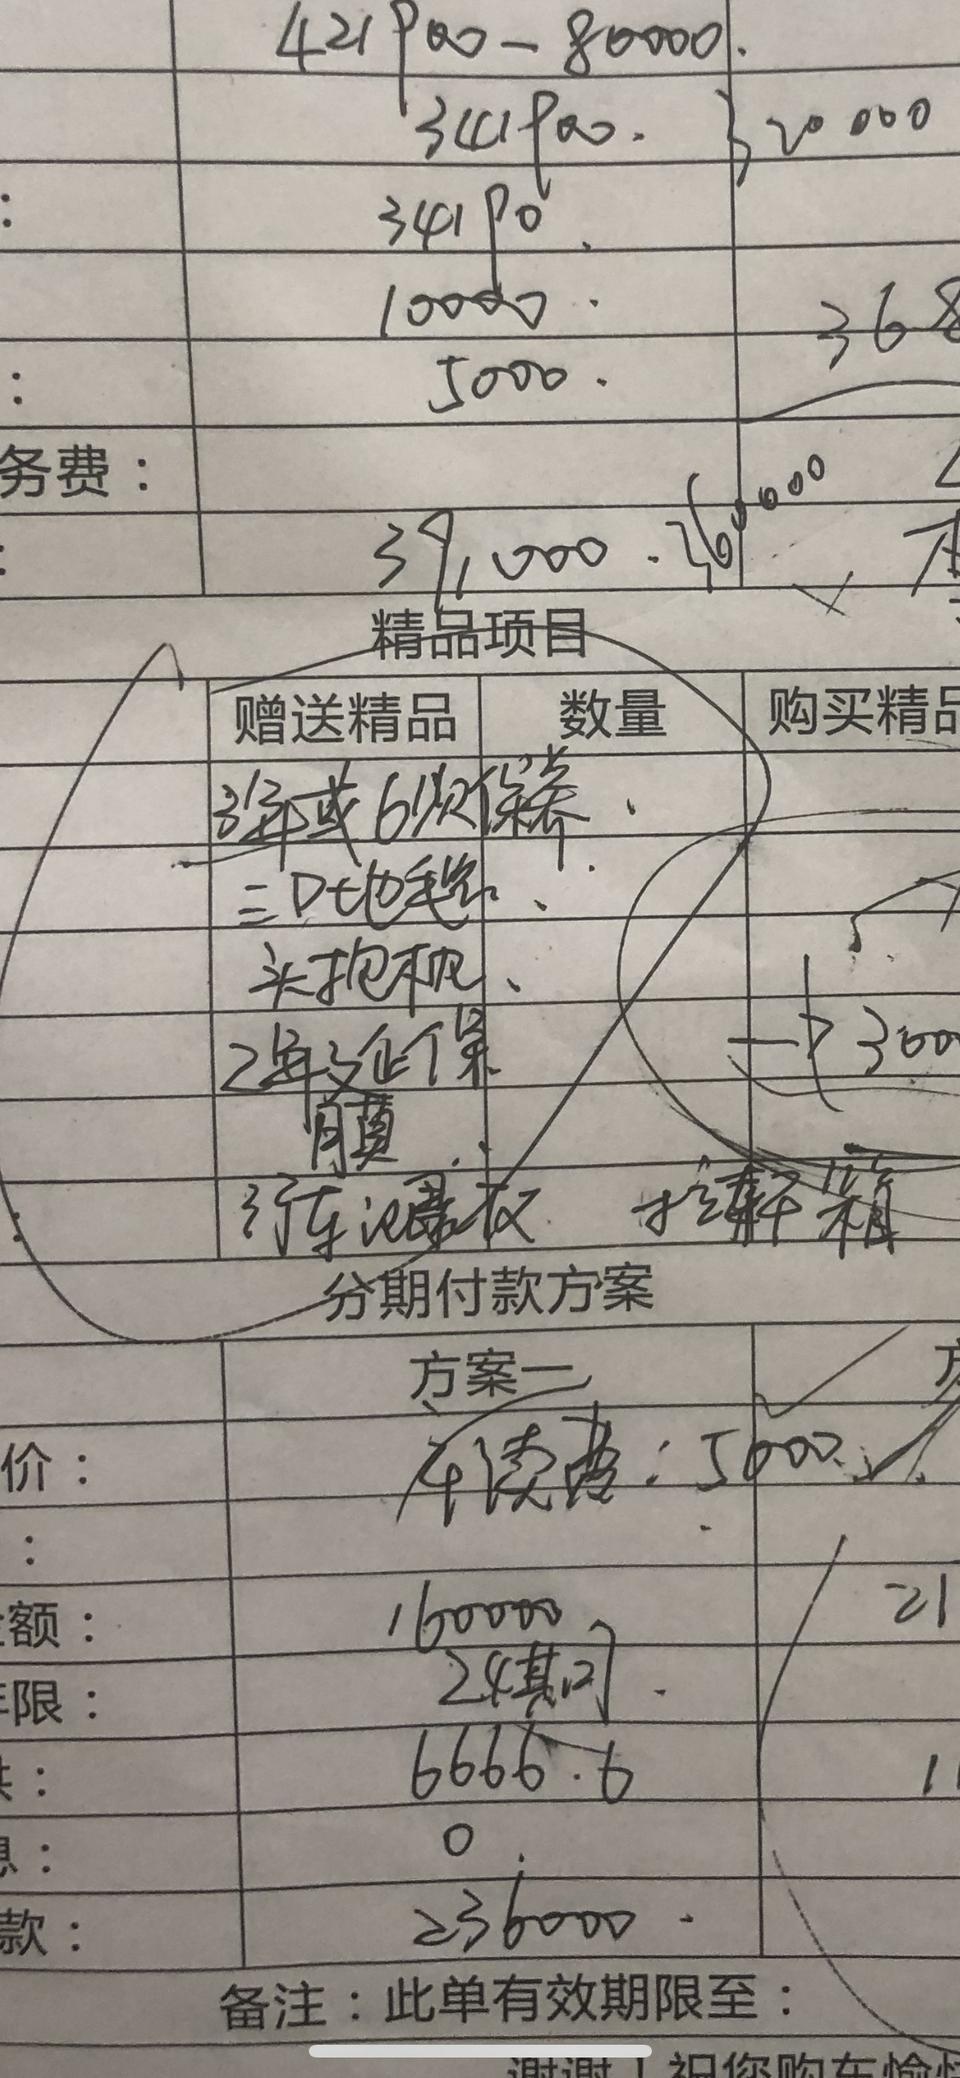 421900-80000.
341900. } 20000
:
34190.
10000.
368
:
5000.
务费:
:
39,000. 360000
精品项目
赠送精品 数量 购买精品
3年或6次保养、
三D地毯、
头抱枕、
2年延保
膜
行车记录仪
分期付款方案
方案一
价:
费:5000
:
额:
160000
21
年限:
24期
供:
6666.6
11
息:
0
款:
236000
备注:此单有效期限至:
谢谢!祝您购车愉